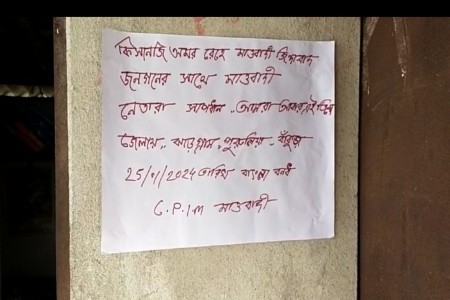 কিসানজি অমর রহে মাওবাদী জিন্দাবাদ
জনগনের সাথে মাওবাদী
নেতারা সাবধান .. আমরা আসছি
জেলায় .. ঝাড়গ্রাম , পুরুলিয়া - বাঁকুড়া
25/1/2024 তারিখ বাংলা বনধ
C.P.I.M মাওবাদী